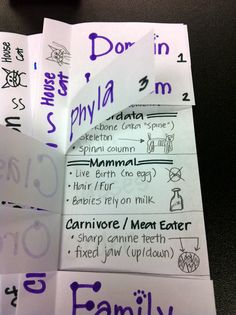 House
Cat
House
Cat
Domain
1
m
2
phyla
3
rdata
kbone (aka "Spine")
skeleton
• Spinal column
Mammal
• Live Birth (no egg)
• Hair / Fur
• Babies rely on milk
Carnivore / Meat Eater
• Sharp canine teeth
• fixed jaw (up/down)
Clas
Or
Cl
Family